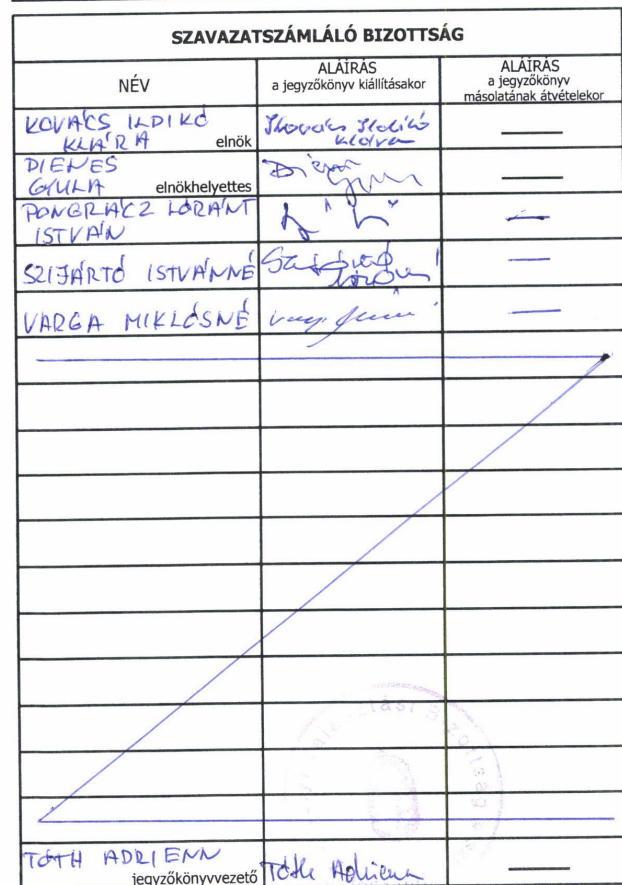 SZAVAZATSZÁMLÁLÓ BIZOTTSÁG
NÉV
ALÁÍRÁS
a jegyzőkönyv kiállításakor
ALÁÍRÁS
a jegyzőkönyv
másolatának átvételekor
KOVÁCS ILDIKÓ
KLÁRA elnök
Kovács Ildikó
Klára
DIENES
GYULA elnökhelyettes
Dienes
Gyula
PONGRÁCZ LÓRÁNT
ISTVÁN
SZIJÁRTÓ ISTVÁNNÉ
VARGA MIKLÓSNÉ
TÓTH ADRIENN
jegyzőkönyvvezető
Tóth Adrienn